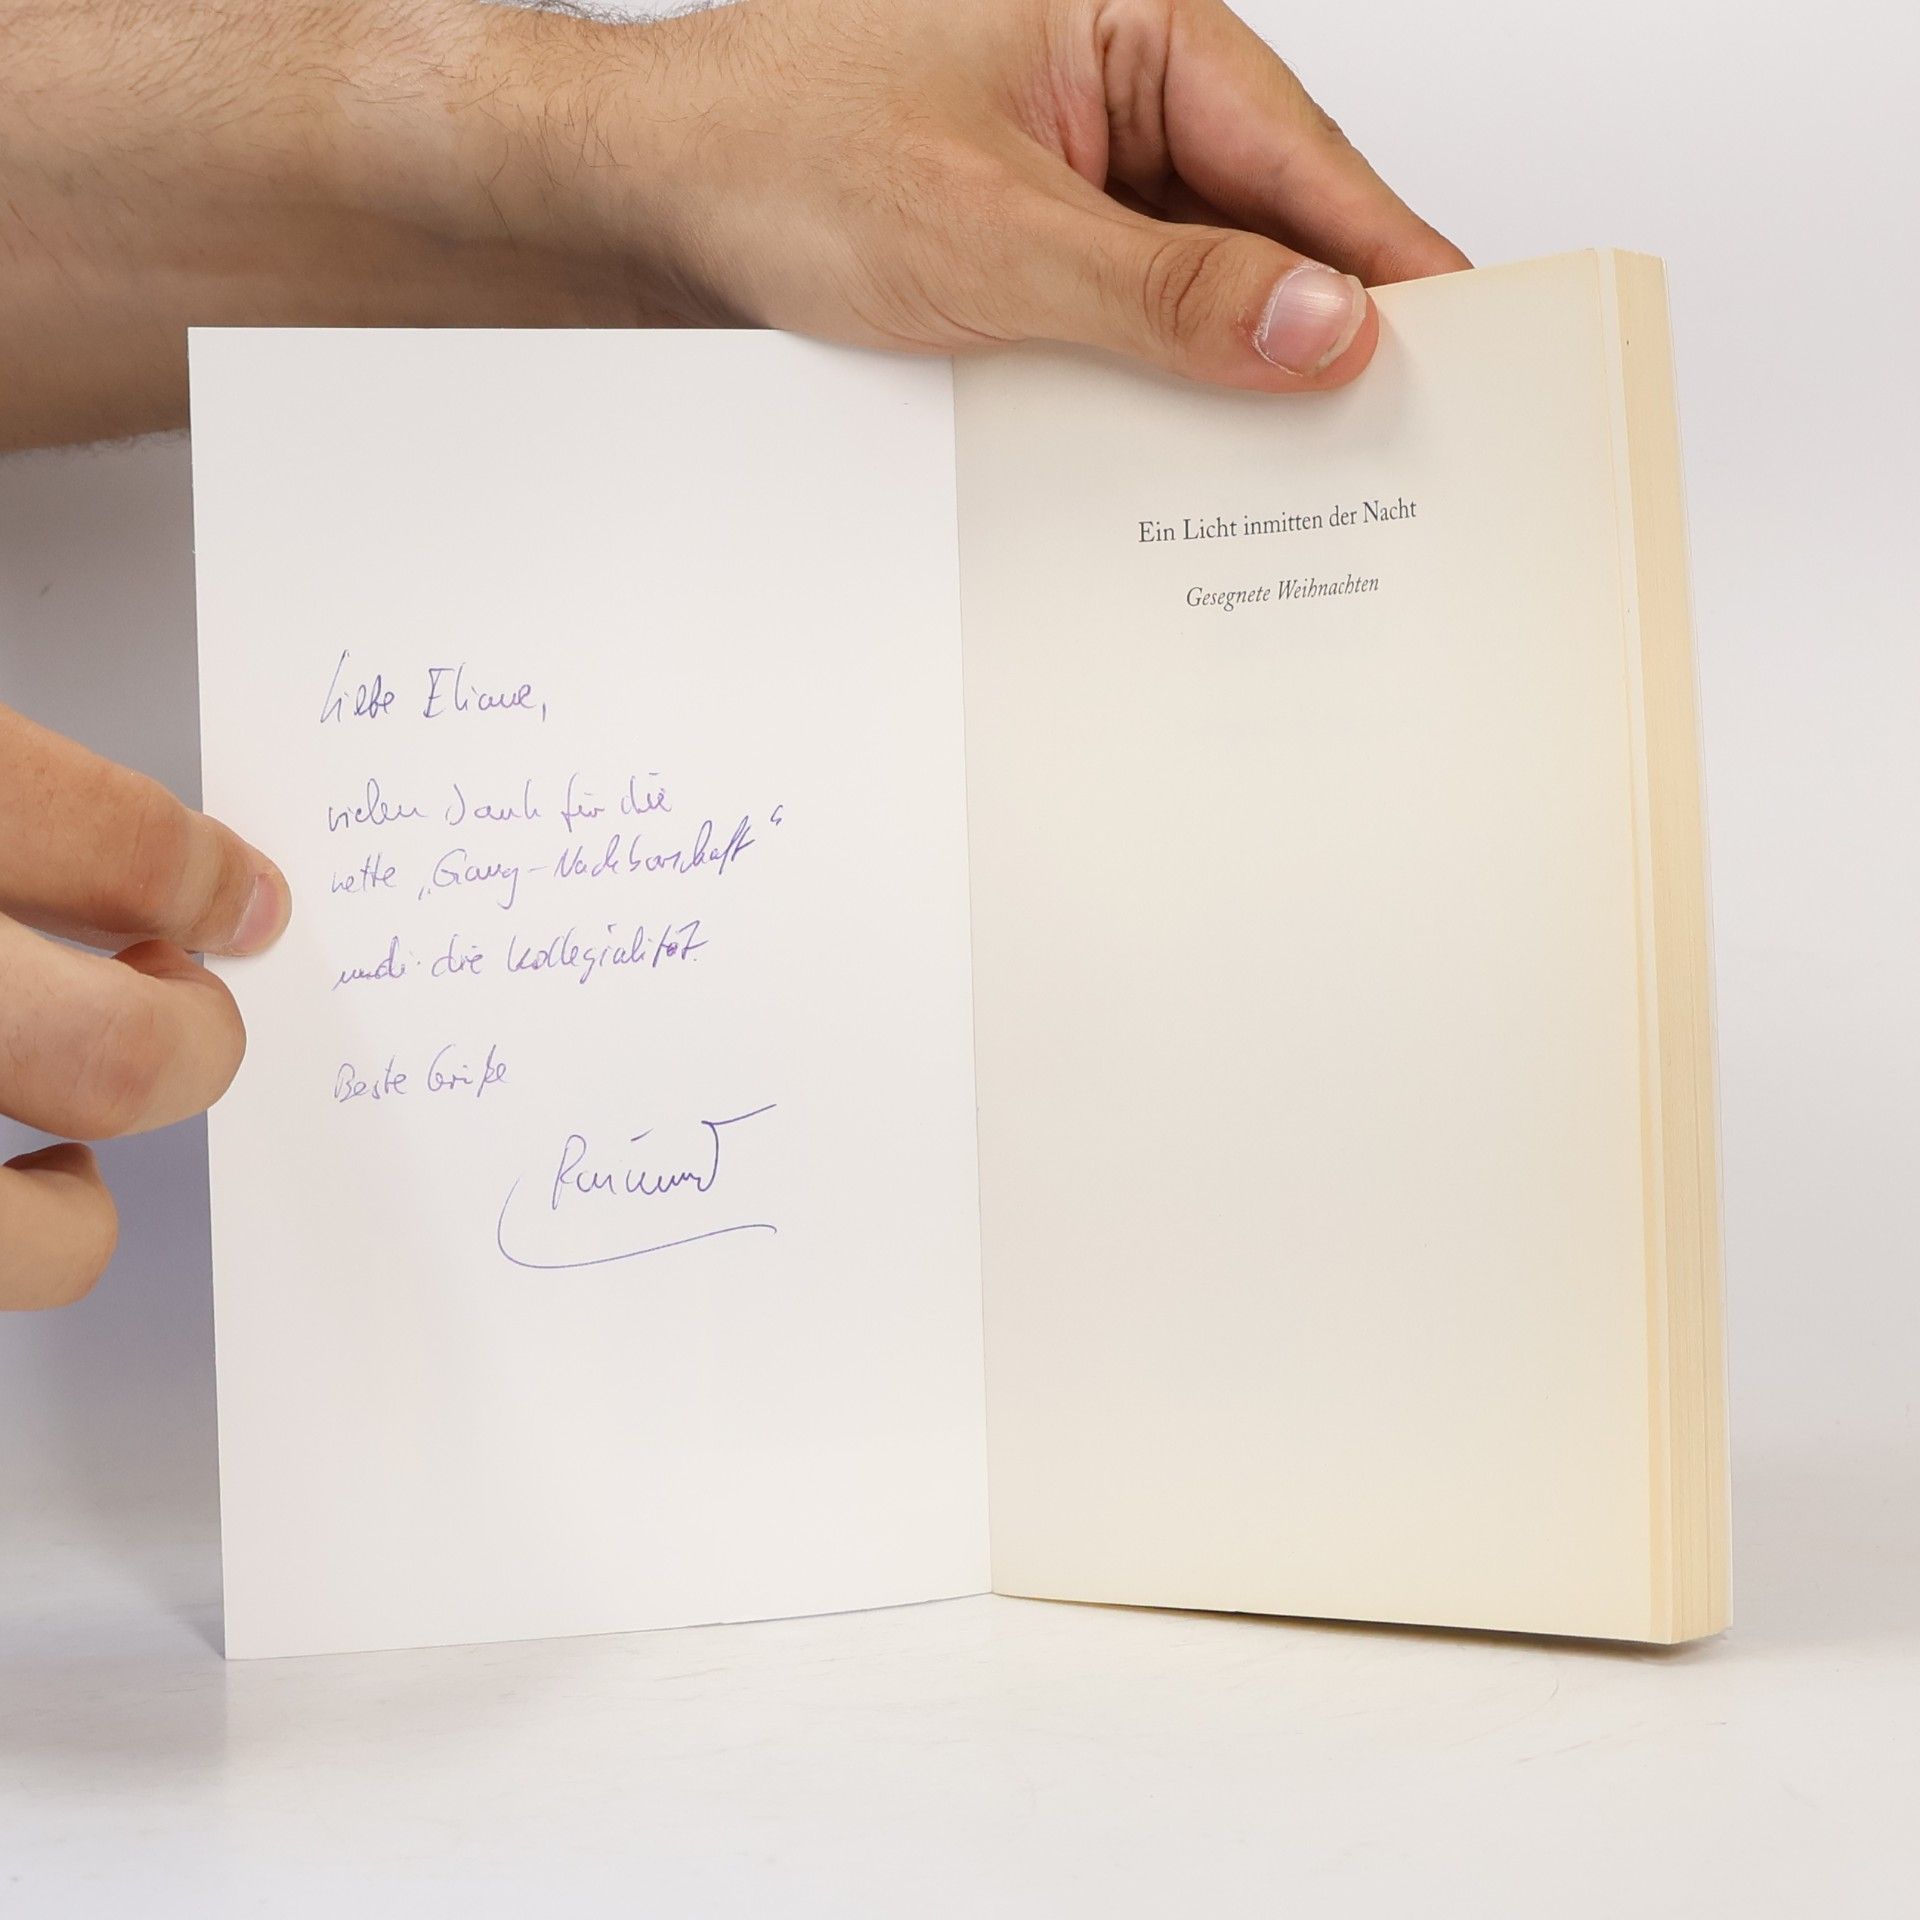 Liebe Eliane,
vielen Dank für die
nette „Gang-Nachbarschaft“
und die Kollegialität.
Beste Grüße
Raimund
Ein Licht inmitten der Nacht
Gesegnete Weihnachten